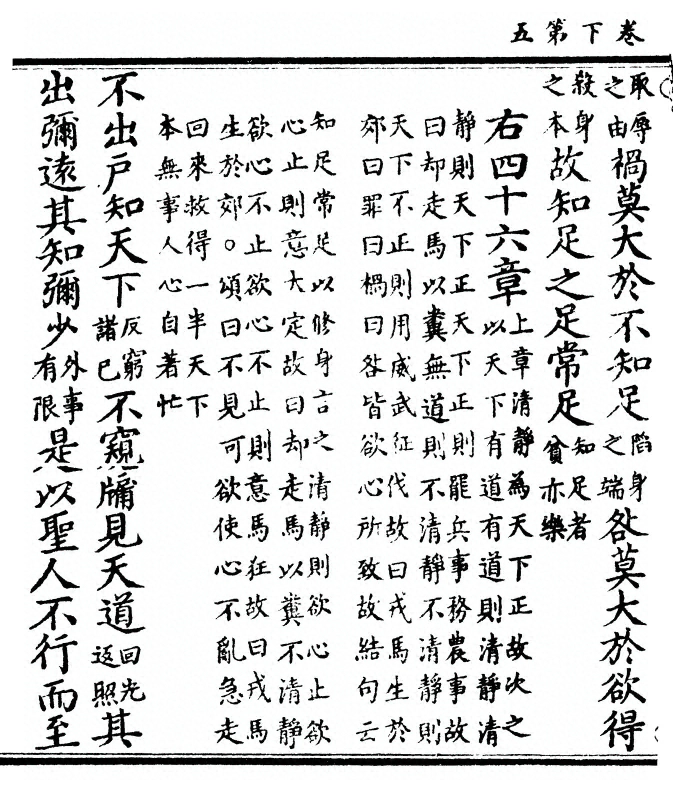 卷下第五
取辱之由禍莫大於不知足陷身之端咎莫大於欲得
殺身之本故知足之足常足知足者貧亦樂
右四十六章上章清靜為天下正故次之以天下有道有道則清靜清
靜則天下正天下正則罷兵事務農事故
曰却走馬以糞無道則不清靜不清靜則
天下不正則用威武征伐故曰戎馬生於
郊曰罪曰禍曰咎皆欲心所致故結句云
知足常足以修身言之清靜則欲心止欲
心止則意大定故曰却走馬以糞不清靜
欲心不止欲心不止則意馬狂故曰戎馬
生於郊○頌曰不見可欲使心不亂急走
回來救得一半天下
本無事人心自著忙
不出戶知天下反窮諸己不窺牖見天道回光返照其
出彌遠其知彌少外事有限是以聖人不行而至